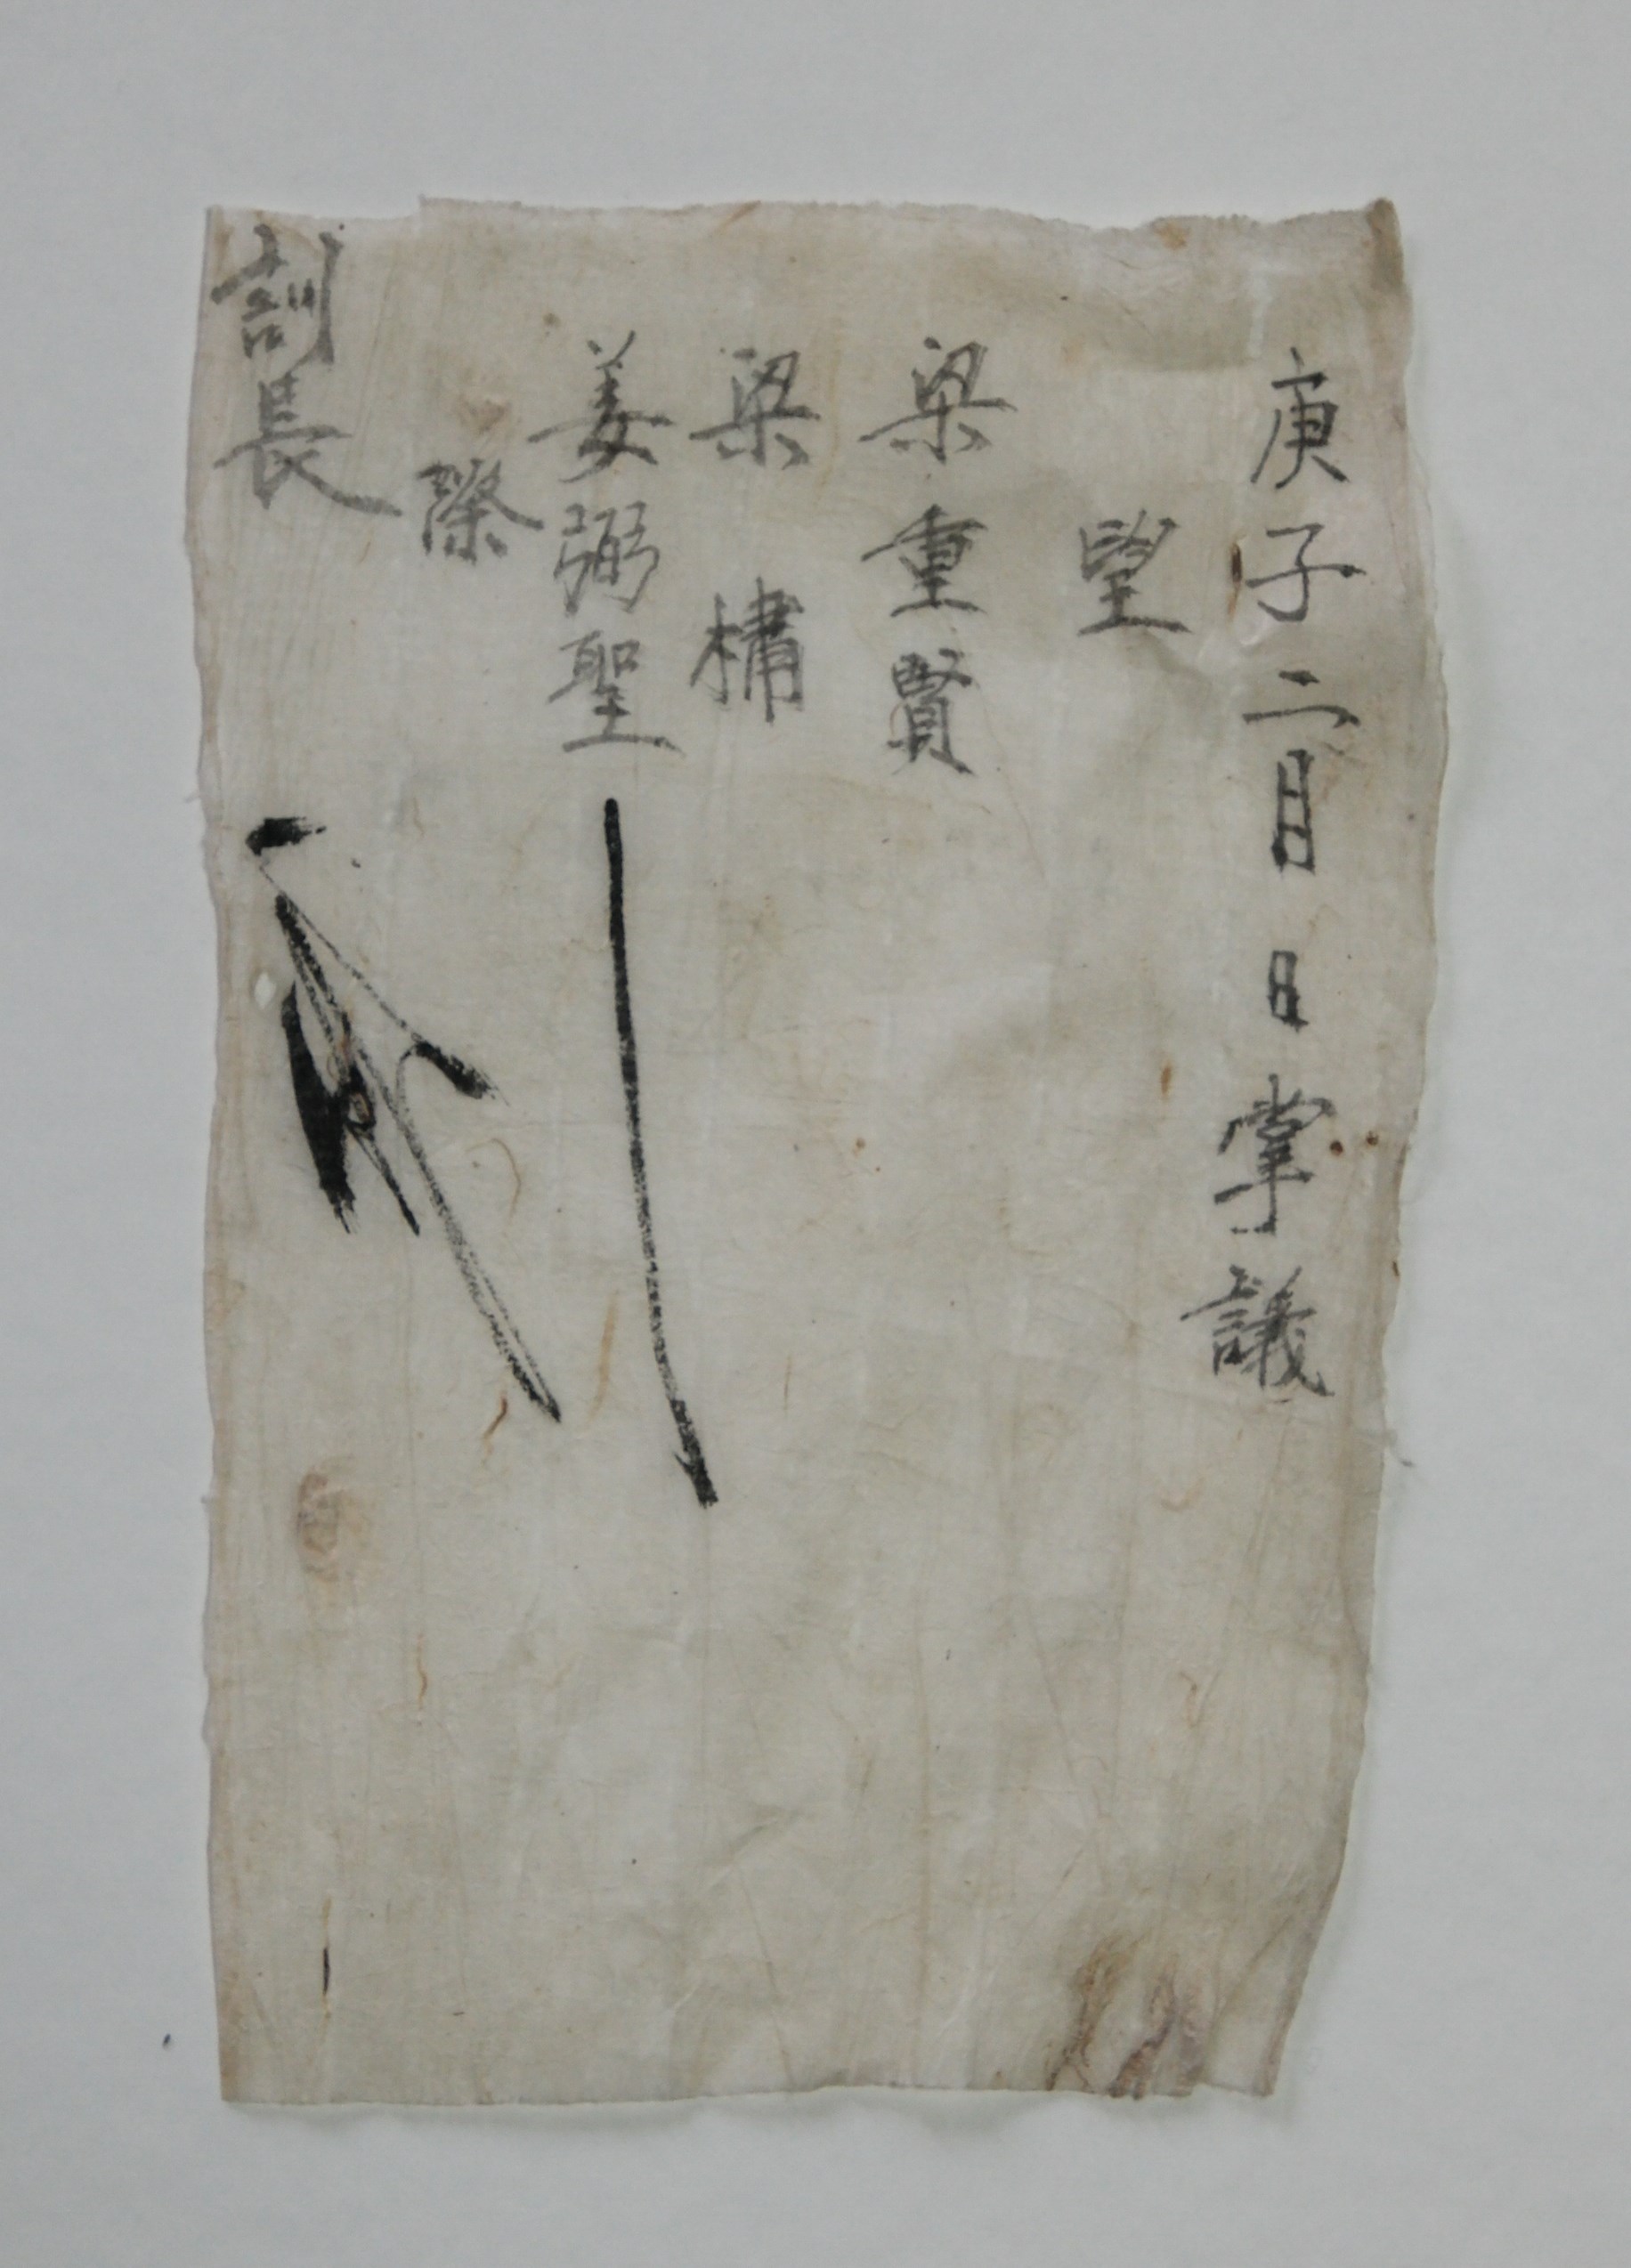 庚子二月 日掌議
望
梁重賢
梁 橚
姜弼聖
際
訓長